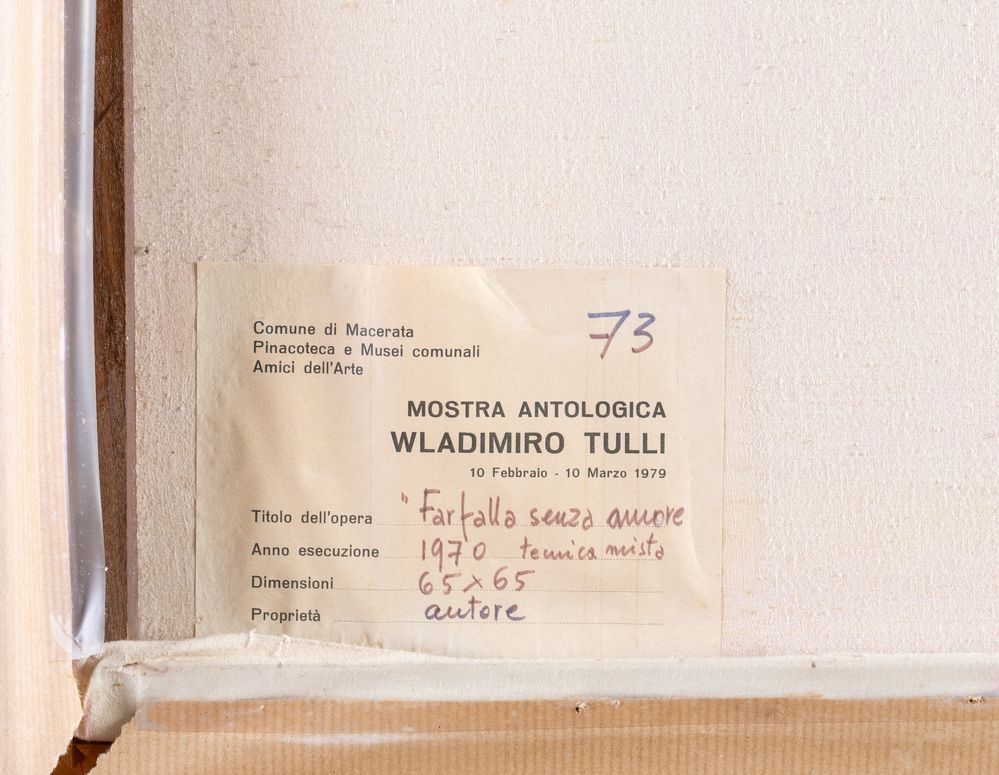 Comune di Macerata
Pinacoteca e Musei comunali
Amici dell'Arte
73
MOSTRA ANTOLOGICA
WLADIMIRO TULLI
10 Febbraio - 10 Marzo 1979
Titolo dell'opera "Farfalla senza amore
Anno esecuzione 1970 tecnica mista
Dimensioni 65x65
Proprietà autore